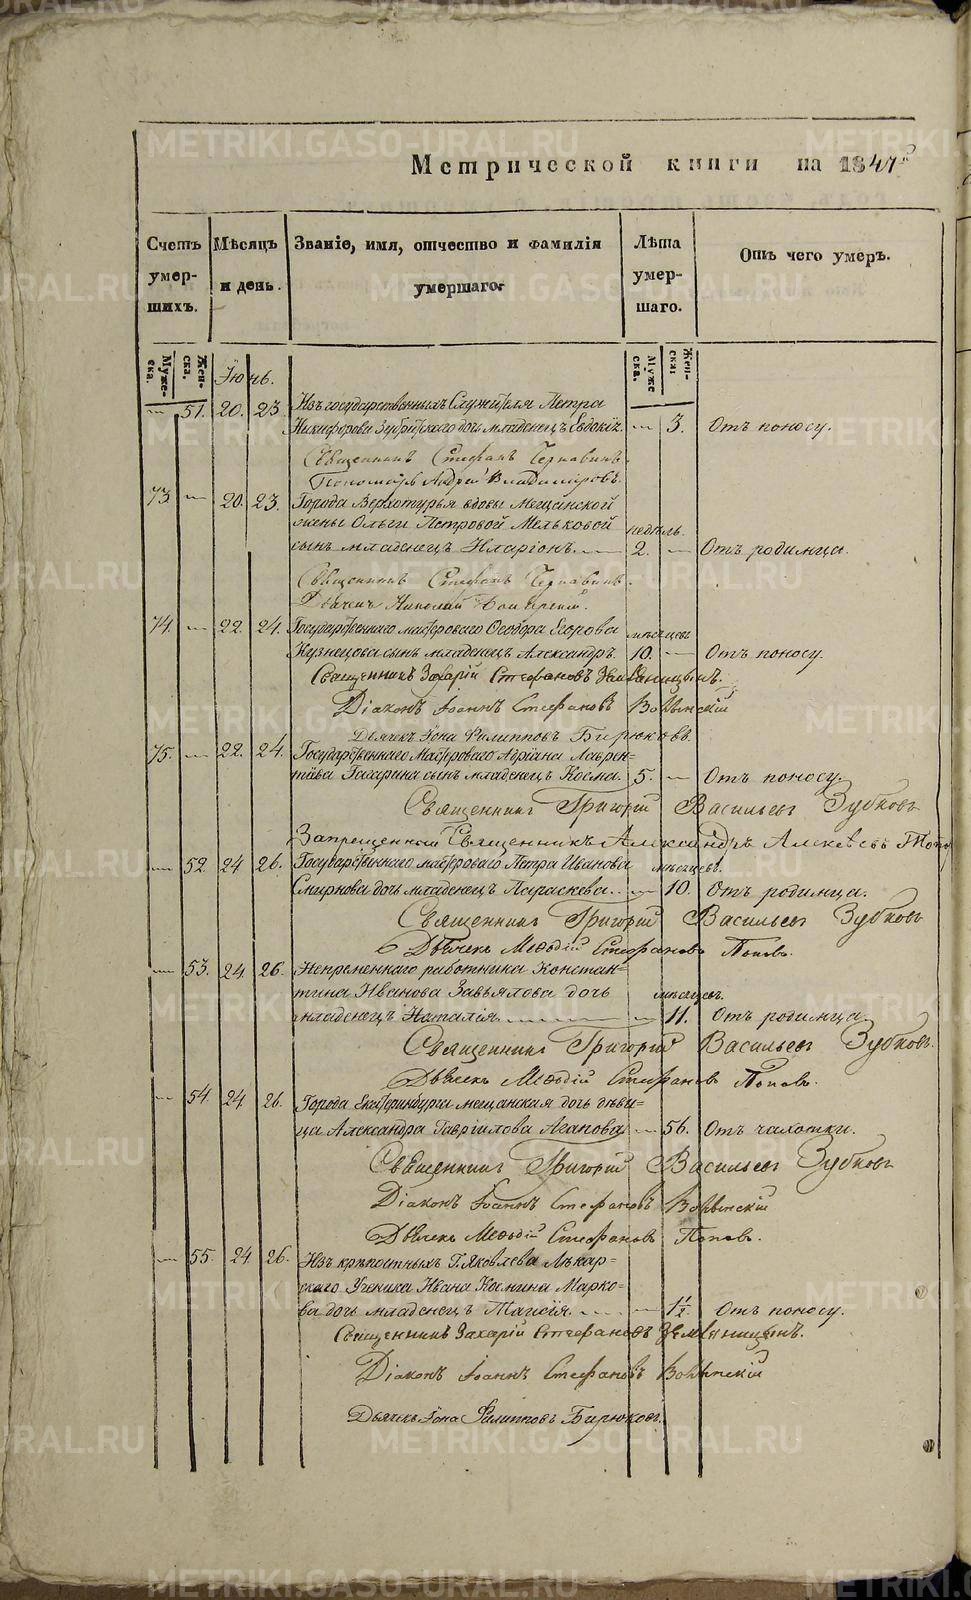 Метрической книги на 1841 г
Счетъ умершихъ.
Мѣсяцъ и день.
Званіе, имя, отчество и фамилія умершаго.
Лѣта умершаго.
Отъ чего умеръ.
Мужеска. Женска. Мужеска. Женска.
Іюнь.
— 51. 20. 23 Изъ государственныхъ Служителя Петра
Никифорова дочь младенецъ Евдокія. — 3. Отъ поносу.
Священникъ Стефанъ Чернавинъ.
Пономарь Андрей Владиміровъ.
73 — 20. 23. Города Верхотурья вдовы Мещанской
жены Ольги Петровой Мельковой недѣль
сынъ младенецъ Иларіонъ. 2. — Отъ родимца.
Священникъ Стефанъ Чернавинъ.
Дьячекъ Николай
74. — 22. 24. Государственнаго мастероваго Егорова мѣсяцевъ
Кузнецова сынъ младенецъ Александръ. 10. — Отъ поносу.
Священникъ Захарій Стефановъ Земляницынъ.
Діаконъ Іоаннъ Стефановъ
Дьячекъ Іона Филипповъ Бирюковъ.
75. — 22. 24. Государственнаго Мастероваго Адріана Лаврен=
тіева Гагарина сынъ младенецъ Косма. 5. — Отъ поносу.
Священникъ Григорій Васильевъ Зубковъ
Запрещенный Священникъ Александръ Алексѣевъ
— 52. 24 26. Государственнаго мастероваго Петра Иванова мѣсяцевъ.
Смирнова дочь младенецъ Параскева. — 10. Отъ родимца.
Священникъ Григорій Васильевъ Зубковъ
Дьячекъ Меѳодій Стефановъ Поповъ.
— 53. 24 26. Непременнаго работника Констан=
тина Иванова Завьялова дочь мѣсяцевъ.
младенецъ Наталія. — 11. Отъ родимца.
Священникъ Григорій Васильевъ Зубковъ.
Дьячекъ Меѳодій Стефановъ Поповъ.
— 54. 24. 26. Города Екатеринбурга мещанская дочь дѣви=
ца Александра Гавріилова Агапова — 56. Отъ чахотки.
Священникъ Григорій Васильевъ Зубковъ
Діаконъ Іоаннъ Стефановъ
Дьячекъ Меѳодій Стефановъ Поповъ.
— 55. 24. 26. Изъ крѣпостныхъ Г. Яковлева Лѣкар=
скаго Ученика Ивана Космина Марко=
ва дочь младенецъ Таисія. — 1½. Отъ поносу.
Священникъ Захарій Стефановъ Земляницынъ.
Діаконъ Іоаннъ Стефановъ
Дьячекъ Іона Филипповъ Бирюковъ.
METRIKI.GASO-URAL.RU